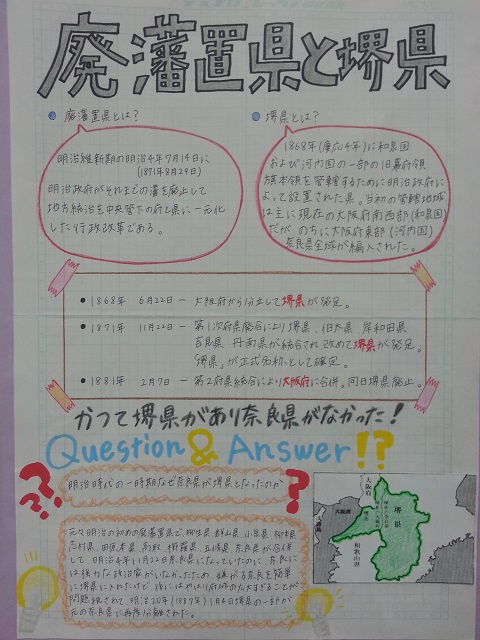 廃藩置県と堺県
廃藩置県とは?
堺県とは?
明治維新期の明治4年7月14日に
(1871年8月29日)
明治政府がそれまでの藩を廃止して
地方統治を中央管下の府と県に一元化
した行政改革である。
1868年(慶応4年)に和泉国
および河内国の一部の旧幕府領
旗本領を管轄するために明治政府によ
って設置された県。当初の管轄地域
は主に現在の大阪府南西部(和泉国)
だが、のちに大阪府東部(河内国)
奈良県全域が編入された。
●1868年 6月22日ー 大阪府から分立して堺県が発足。
●1871年 11月22日ー 第1次府県統合により堺県、伯太県、岸和田県
吉見県、丹南県が統合され、改めて堺県が発足。
「堺県」が正式名称として確定。
●1881年 2月7日ー 第2府県統合により大阪府に合併。同日堺県廃止。
かつて堺県があり奈良県がなかった!
Question & Answer!?
明治時代の一時期なぜ奈良県が堺県となったのか
???
元々明治の初めの廃藩置県で柳生県 郡山県 小泉県 柳本県
芝村県、田原本県 高取 櫛羅県 五條県 奈良県が合併
して 明治4年11月22日奈良県になった
問題視されて 明治20年(1887年)1月4日堺県の一部が
元の奈良県に再び分離された。
大阪府
堺県
和歌山県